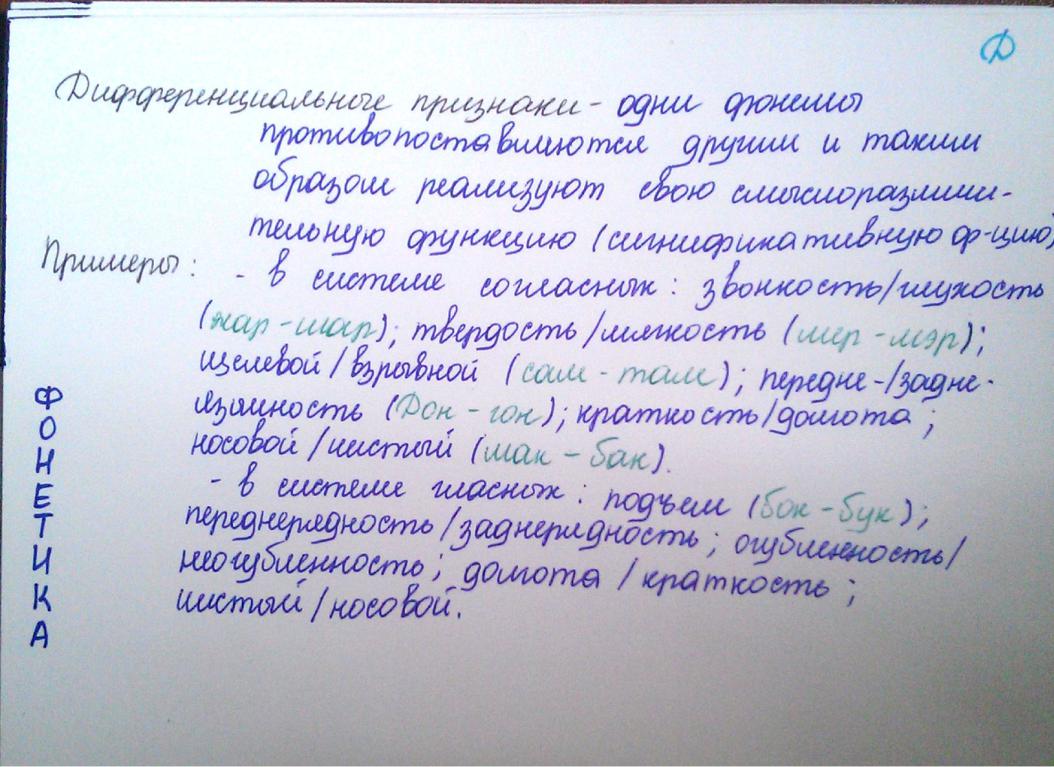 Д
Дифференциальные признаки - одни фонемы
противопоставляются другим и таким
образом реализуют свою смыслоразличи-
тельную функцию (сигнификативную ф-цию)
Примеры: - в системе согласных: звонкость/глухость
(жар - шар); твердость/мягкость (мер - мэр);
щелевой/взрывной (сам - там); передне-/задне-
язычность (Дон - гон); краткость/долгота;
носовой/чистый (мак - бак).
- в системе гласных: подъем (бок - бук);
переднерядность/заднерядность; огубленность/
неогубленность; долгота / краткость;
чистый/носовой.
ФОНЕТИКА